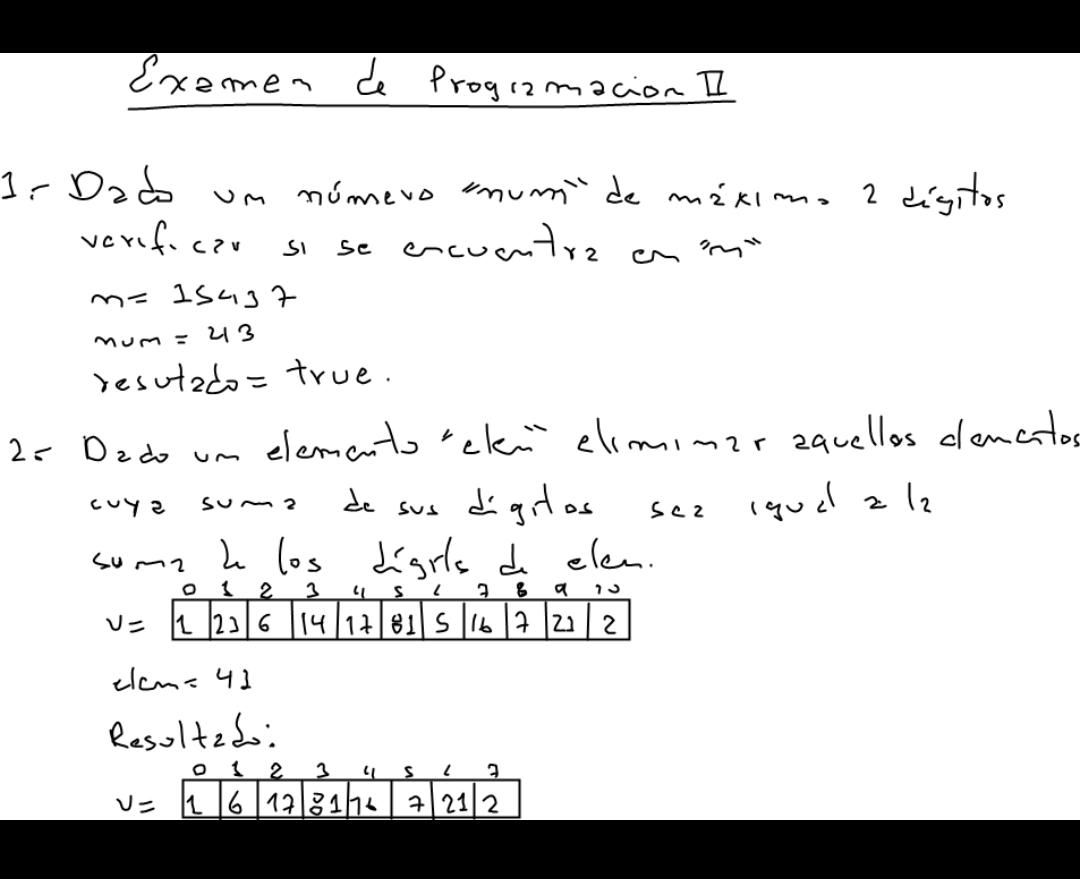 Examen de Programacion II
1.- Dado un número "num" de máximo 2 dígitos
verificar si se encuentra en "n"
n= 15437
num = 43
resutado= true.
2.- Dado un elemento "elem" eliminar aquellos elementos
cuya suma de sus digitos sea igual a la
suma de los dígits de elem.
0 1 2 3 4 5 6 7 8 9 10
v= 1 23 6 14 17 81 5 16 7 21 2
elem= 41
Resultado:
0 1 2 3 4 5 6 7
v= 1 6 17 81 16 7 21 2